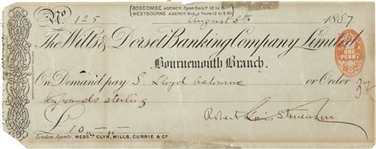 BOSCOMBE AGENCY OPEN DAILY 10 to 3
WESTBOURNE AGENCY
No 125 August 5th 1887
The Wilts & Dorset Banking Company Limited
Bournemouth Branch.
On Demand pay S. Lloyd Osbourne or Order
Ten pounds sterling
ONE PENNY
£10 — — Robert Louis Stevenson
London Agents, MESSRS GLYN, MILLS, CURRIE & Co